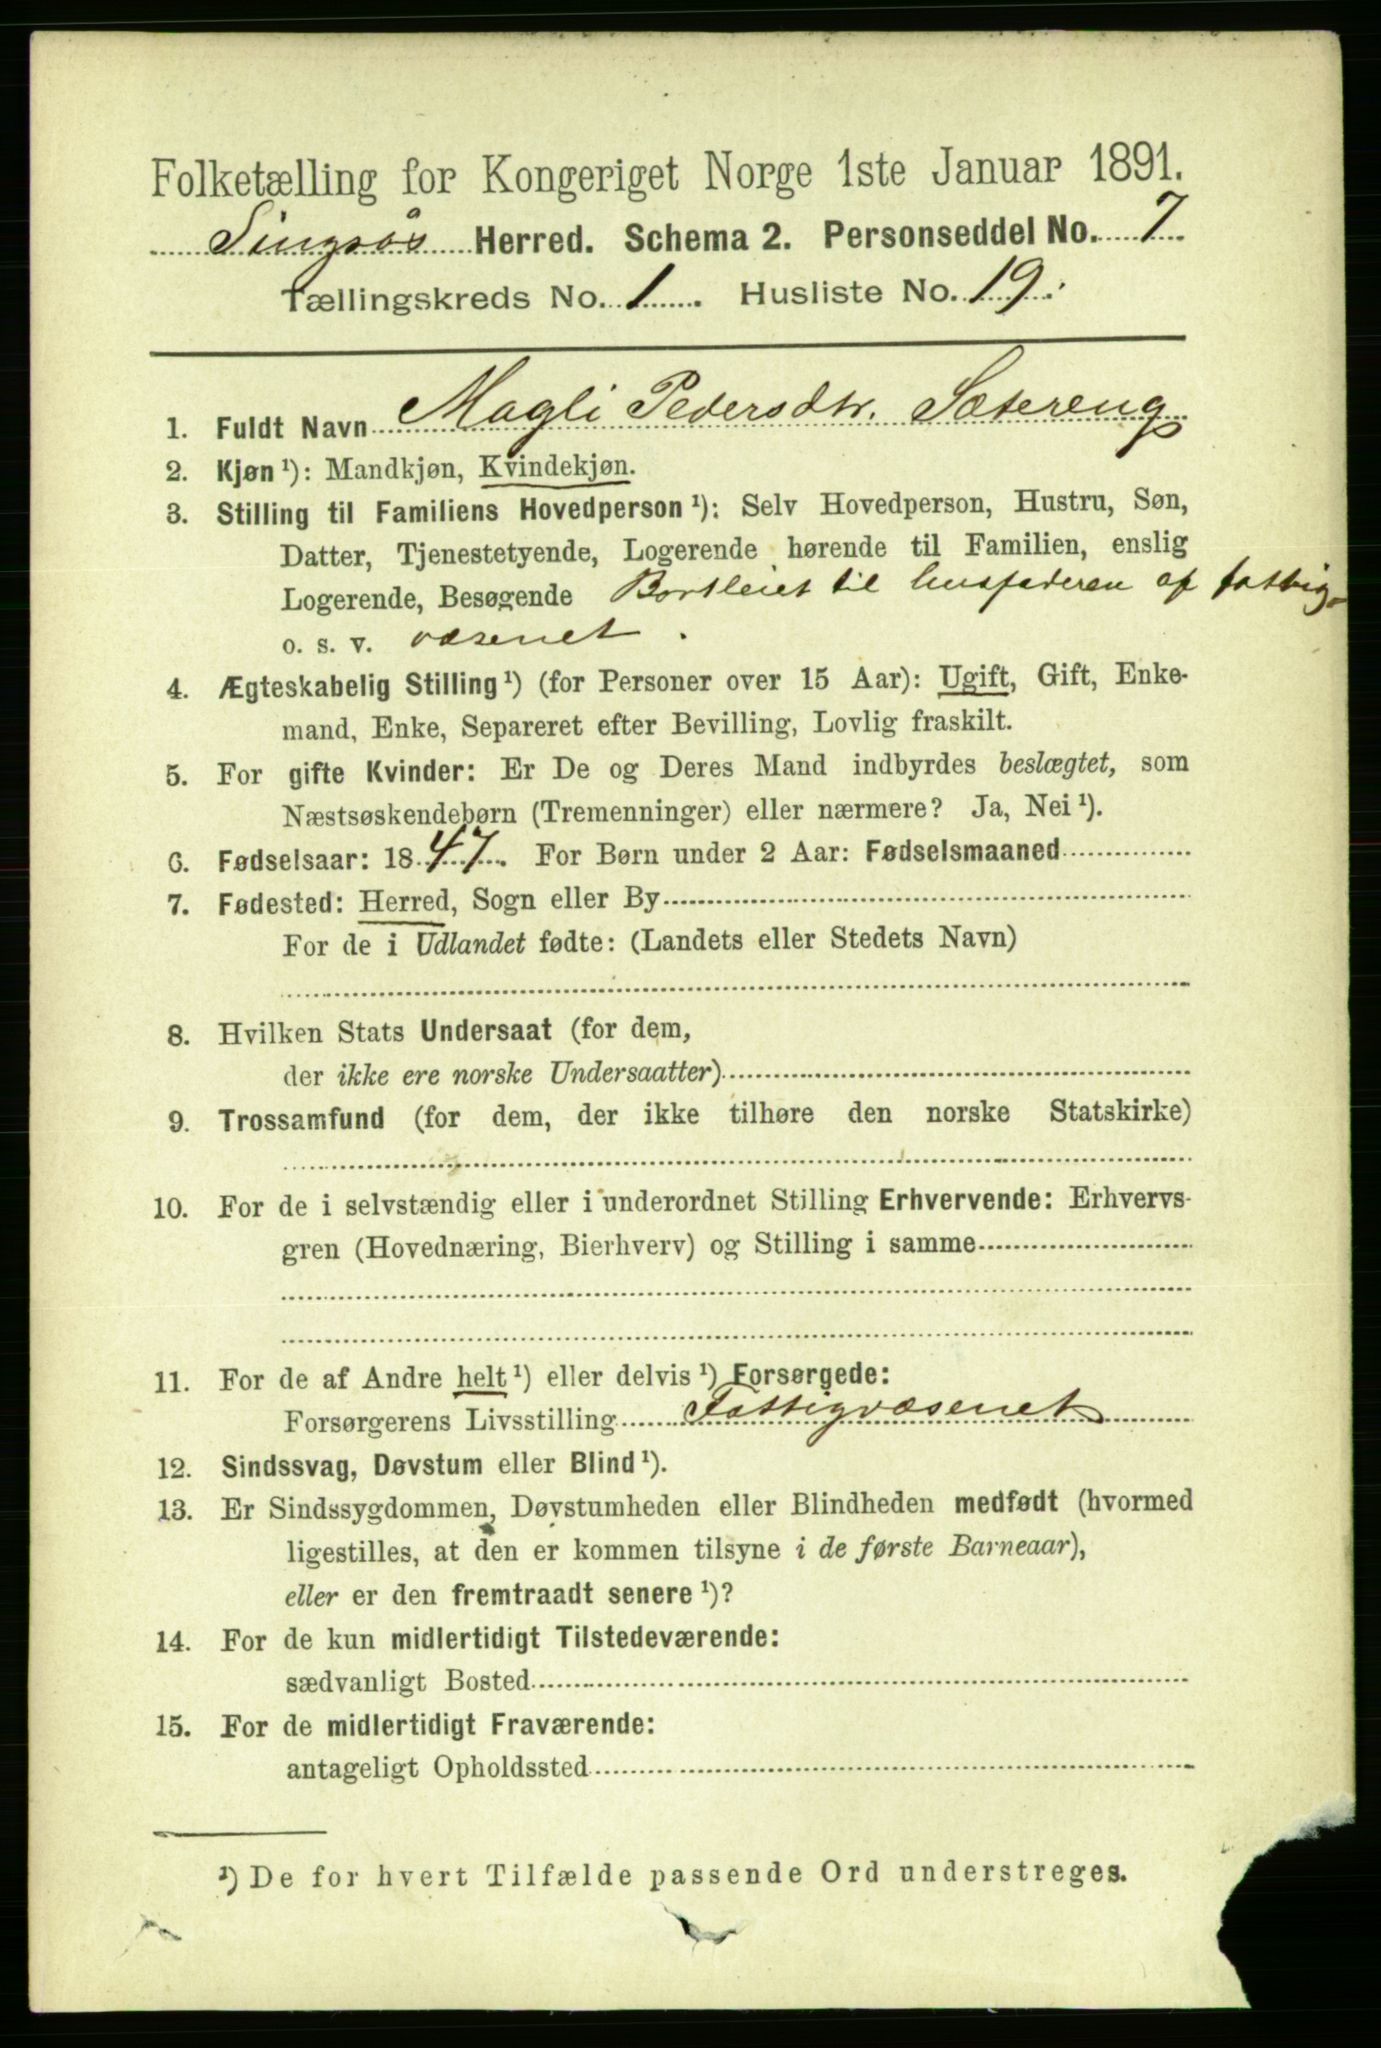 Folketælling for Kongeriget Norge 1ste Januar 1891.
Singsås Herred. Schema 2. Personseddel No. 7
Tællingskreds No. 1. Husliste No. 19.
1. Fuldt Navn Magli Pedersdtr. Sætereng
2. Kjøn ¹): Mandkjøn, Kvindekjøn.
3. Stilling til Familiens Hovedperson ¹): Selv Hovedperson, Hustru, Søn,
Datter, Tjenestetyende, Logerende hørende til Familien, enslig
Logerende, Besøgende Bortleiet til husfaderen af fattig-
o. s. v. væsenet.
4. Ægteskabelig Stilling ¹) (for Personer over 15 Aar): Ugift, Gift, Enke-
mand, Enke, Separeret efter Bevilling, Lovlig fraskilt.
5. For gifte Kvinder: Er De og Deres Mand indbyrdes beslægtet, som
Næstsøskendebørn (Tremenninger) eller nærmere? Ja, Nei ¹).
6. Fødselsaar: 1847. For Børn under 2 Aar: Fødselsmaaned
7. Fødested: Herred, Sogn eller By
For de i Udlandet fødte: (Landets eller Stedets Navn)
8. Hvilken Stats Undersaat (for dem,
der ikke ere norske Undersaatter)
9. Trossamfund (for dem, der ikke tilhøre den norske Statskirke)
10. For de i selvstændig eller i underordnet Stilling Erhvervende: Erhvervs-
gren (Hovednæring, Bierhverv) og Stilling i samme
11. For de af Andre helt ¹) eller delvis ¹) Forsørgede:
Forsørgerens Livsstilling Fattigvæsenet
12. Sindssvag, Døvstum eller Blind ¹).
13. Er Sindssygdommen, Døvstumheden eller Blindheden medfødt (hvormed
ligestilles, at den er kommen tilsyne i de første Barneaar),
eller er den fremtraadt senere ¹)?
14. For de kun midlertidigt Tilstedeværende:
sædvanligt Bosted
15. For de midlertidigt Fraværende:
antageligt Opholdssted
¹) De for hvert Tilfælde passende Ord understreges.